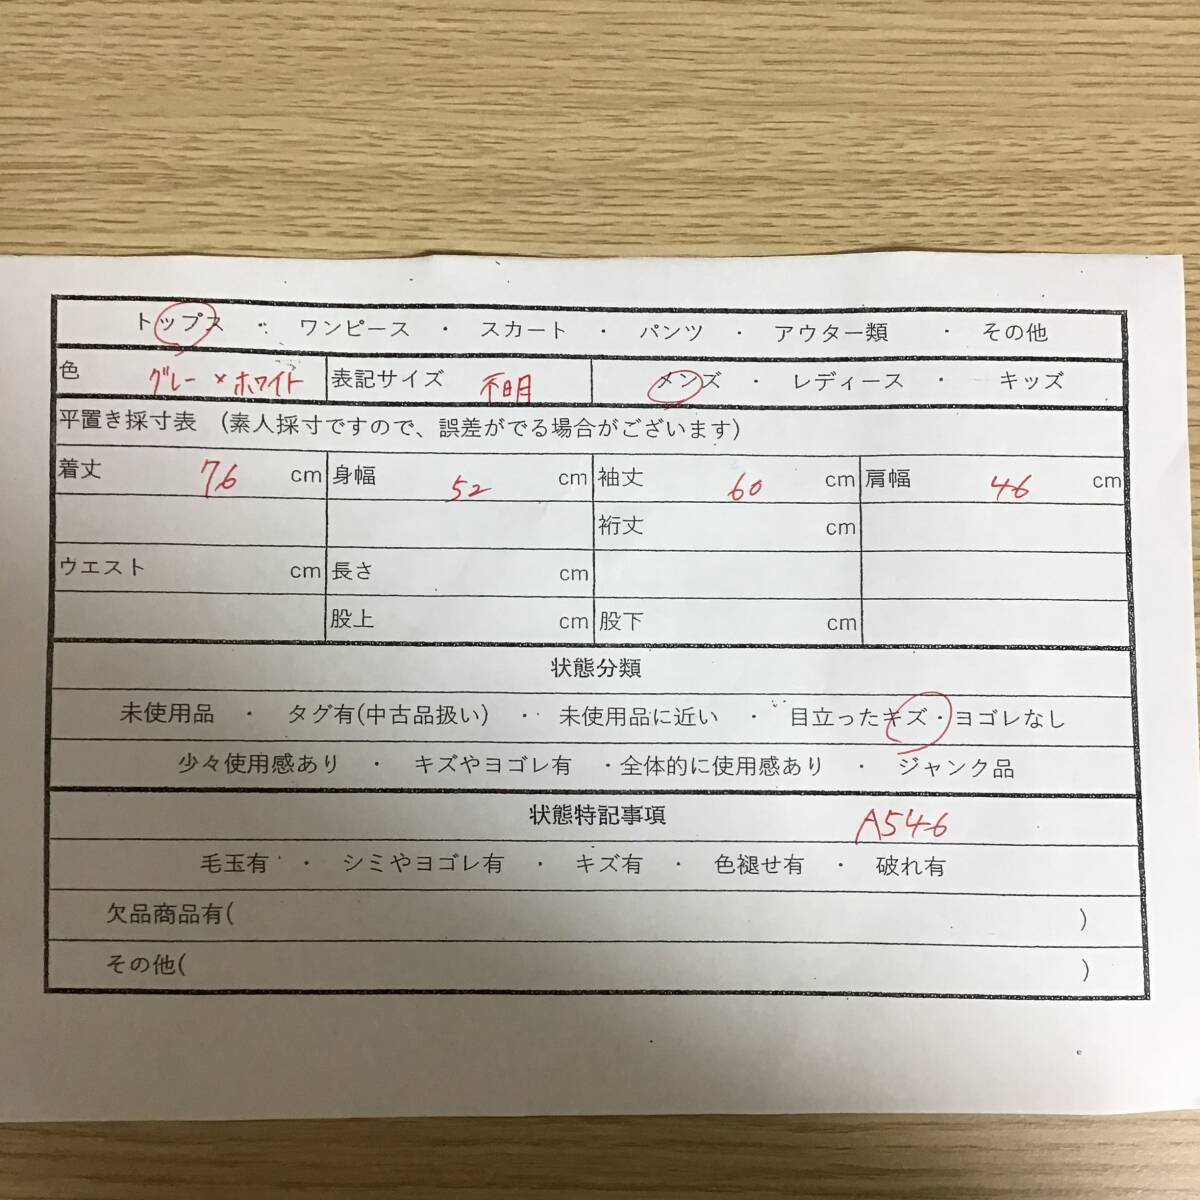 トップス ・ ワンピース ・ スカート ・ パンツ ・ アウター類 ・ その他
色 グレー×ホワイト 表記サイズ 不明 メンズ ・ レディース ・ キッズ
平置き採寸表 (素人採寸ですので、誤差がでる場合がございます)
着丈 76 cm 身幅 52 cm 袖丈 60 cm 肩幅 46 cm
裄丈 cm
ウエスト cm 長さ cm
股上 cm 股下 cm
状態分類
未使用品 ・ タグ有(中古品扱い) ・ 未使用品に近い ・ 目立ったキズ・ヨゴレなし
少々使用感あり ・ キズやヨゴレ有 ・全体的に使用感あり ・ ジャンク品
状態特記事項 A546
毛玉有 ・ シミやヨゴレ有 ・ キズ有 ・ 色褪せ有 ・ 破れ有
欠品商品有( )
その他( )